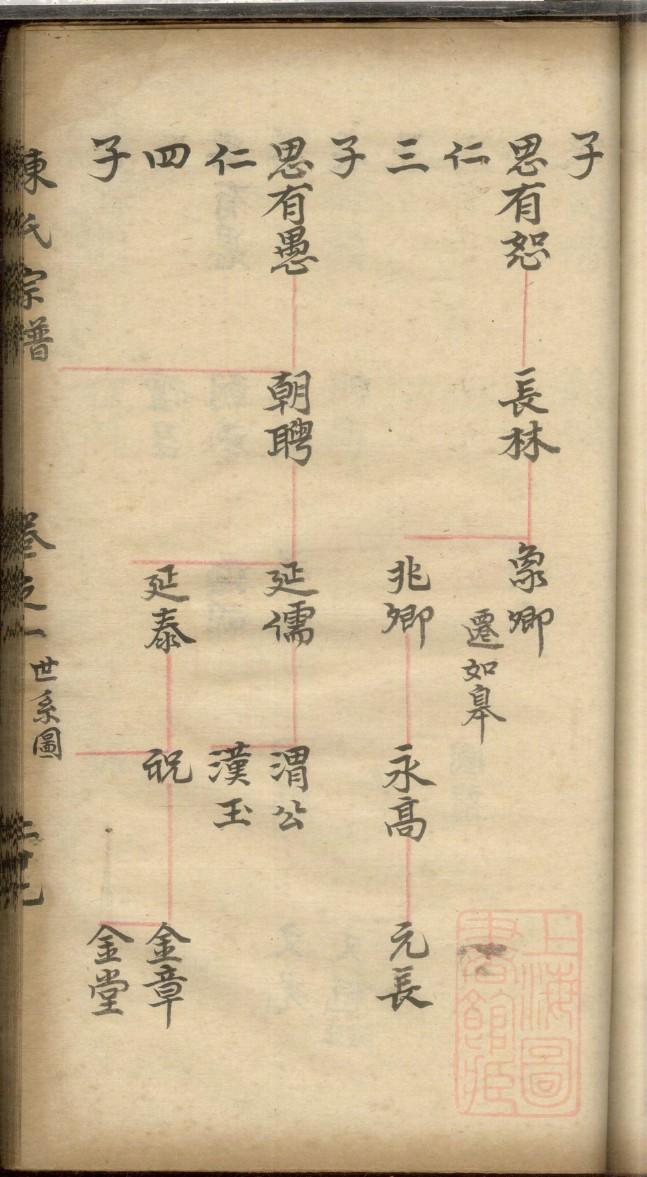 子
思有恕 長林 象卿
仁 遷如皋
三 兆卿 永高 元長
子
思有愚 朝聘 延儒 渭公
仁 漢玉
四 延泰 祝 金章
子 金堂
陳氏宗譜 卷之一 世系圖
上海圖書館藏